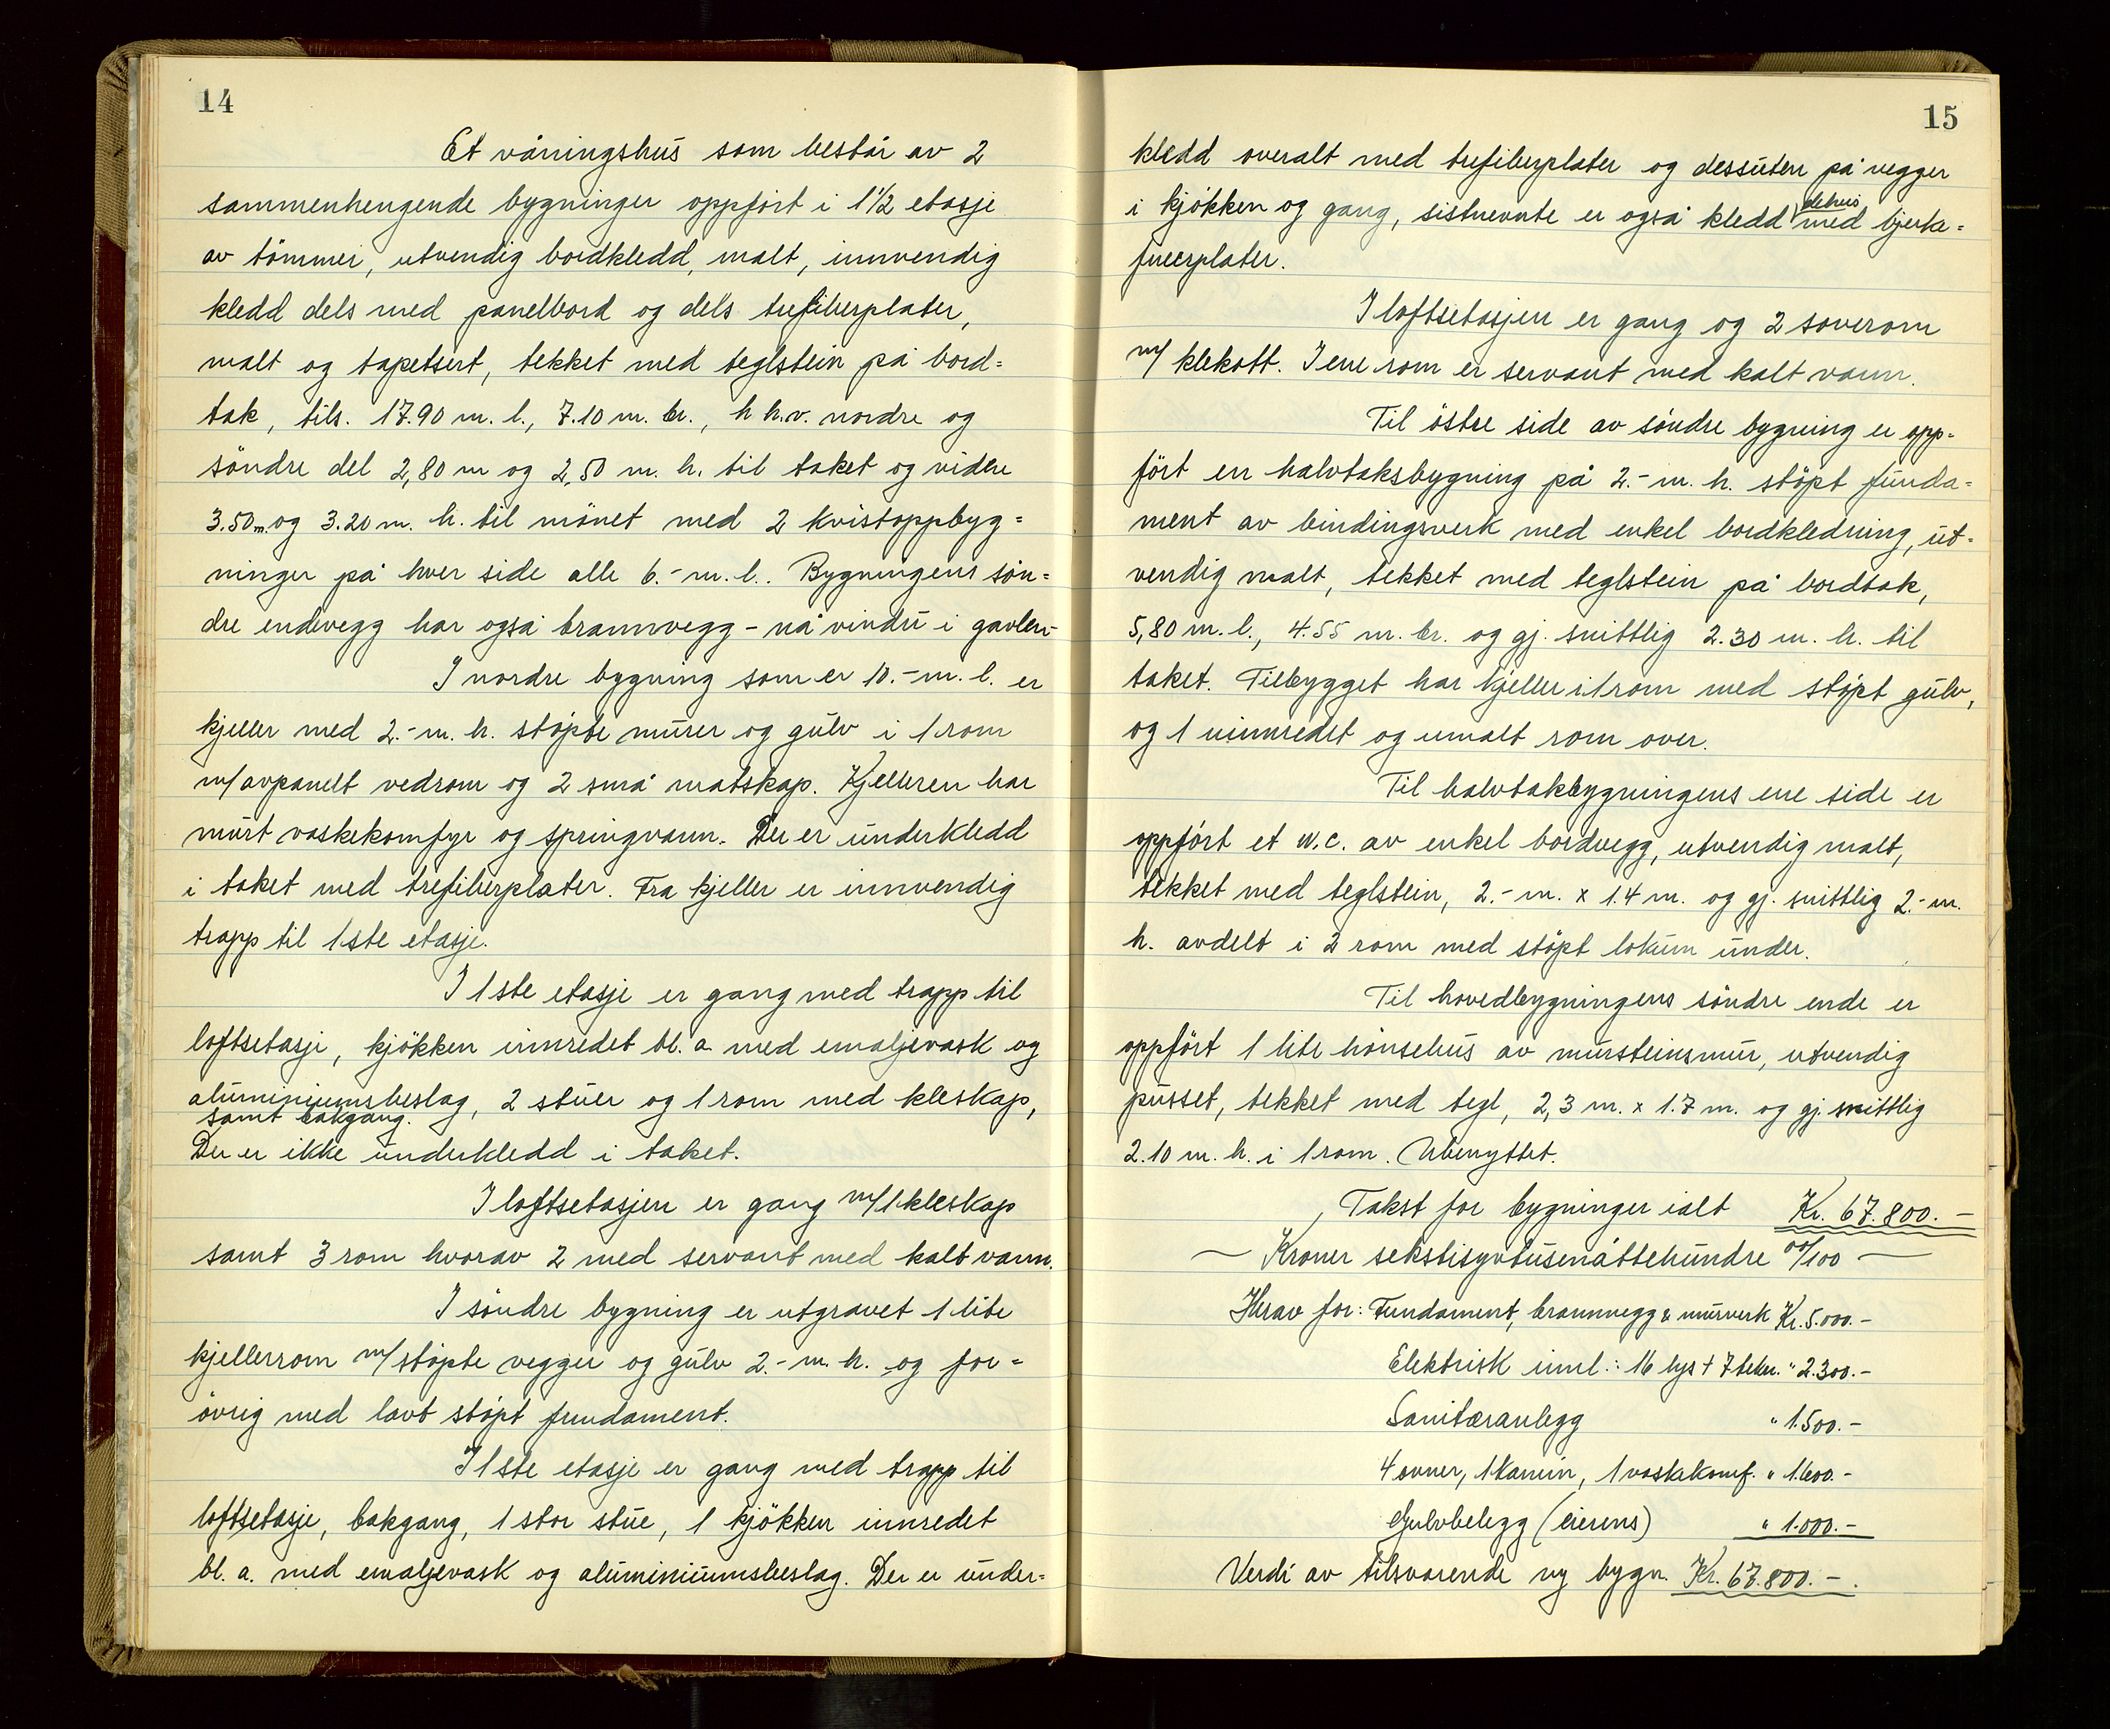 14
Et våningshus som består av 2
sammenhengende bygninger oppført i 1½ etasje
av tømmer, utvendig bordkledd, malt, innvendig
kledd dels med panelbord og dels trefiberplater,
malt og tapetsert, tekket med teglstein på bord=
tak, tils. 17.90 m. l., 7.10 m. br., h.h.v. nordre og
søndre del 2,80 m og 2,50 m. h. til taket og videre
3.50 m. og 3.20 m. h. til mønet med 2 kvistoppbyg=
ninger på hver side alle 6.- m. l.. Bygningens søn=
dre endevegg har også brannvegg - nå vindu i gavlen-
I nordre bygning som er 10.- m. l. er
kjeller med 2.- m. h. støpte murer og gulv i 1 rom
m/ avpanelt vedrom og 2 små matskap. Kjelleren har
murt vaskekomfyr og springvann. Der er underkledd
i taket med trefiberplater. Fra kjeller er innvendig
trapp til 1ste etasje.
I 1ste etasje er gang med trapp til
loftsetasje, kjøkken innredet bl. a. med emaljevask og
aluminiumsbeslag, 2 stuer og 1 rom med kleskap,
samt bakgang.
Der er ikke underkledd i taket.
I loftsetasjen er gang m/ 1 kleskap
samt 3 rom hvorav 2 med servant med kalt vann.
I søndre bygning er utgravet 1 lite
kjellerrom m/ støpte vegger og gulv 2.- m. h. og for=
øvrig med lavt støpt fundament.
I 1ste etasje er gang med trapp til
loftsetasje, bakgang, 1 stor stue, 1 kjøkken innredet
bl. a. med emaljevask og aluminiumsbeslag. Der er under=
15
kledd overalt med trefiberplater og dessuten på vegger
i kjøkken og gang, sistnevnte er også kledd delvis med bjerke=
fineerplater.
I loftsetasjen er gang og 2 soverom
m/ klekott. I ene rom er servant med kalt vann.
Til østre side av søndre bygning er opp=
ført en halvtaksbygning på 2.- m. h. støpt funda=
ment av bindingsverk med enkel bordkledning, ut=
vendig malt, tekket med teglstein på bordtak,
5,80 m. l., 4.55 m. br. og gj. snittlig 2.30 m. h. til
taket. Tilbygget har kjeller i 1 rom med støpt gulv,
og 1 uinnredet og umalt rom over.
Til halvtakbygningens ene side er
oppført et w.c. av enkel bordvegg, utvendig malt,
tekket med teglstein, 2.- m. x 1.4 m. og gj. snittlig 2.- m.
h. avdelt i 2 rom med støpt lokum under.
Til hovedbygningens søndre ende er
oppført 1 lite hønsehus av mursteinsmur, utvendig
pusset, tekket med tegl, 2,3 m. x 1.7 m. og gj. snittlig
2.10 m. h. i 1 rom. Ubenyttet.
Takst for bygninger ialt Kr. 67.800.-
— Kroner sekstisyvtusenåttehundre 00/100 —
Herav for: Fundament, brannvegg & murverk Kr. 5.000.-
Elektrisk innl.: 16 lys + 7 tekn. " 2.300.-
Sanitæranlegg " 1.500.-
4 ovner, 1 kamin, 1 vaskekomf. " 1.600.-
Gulvbelegg (eierens) " 1.000.-
Verdi av tilsvarende ny bygn. Kr. 67.800.-.